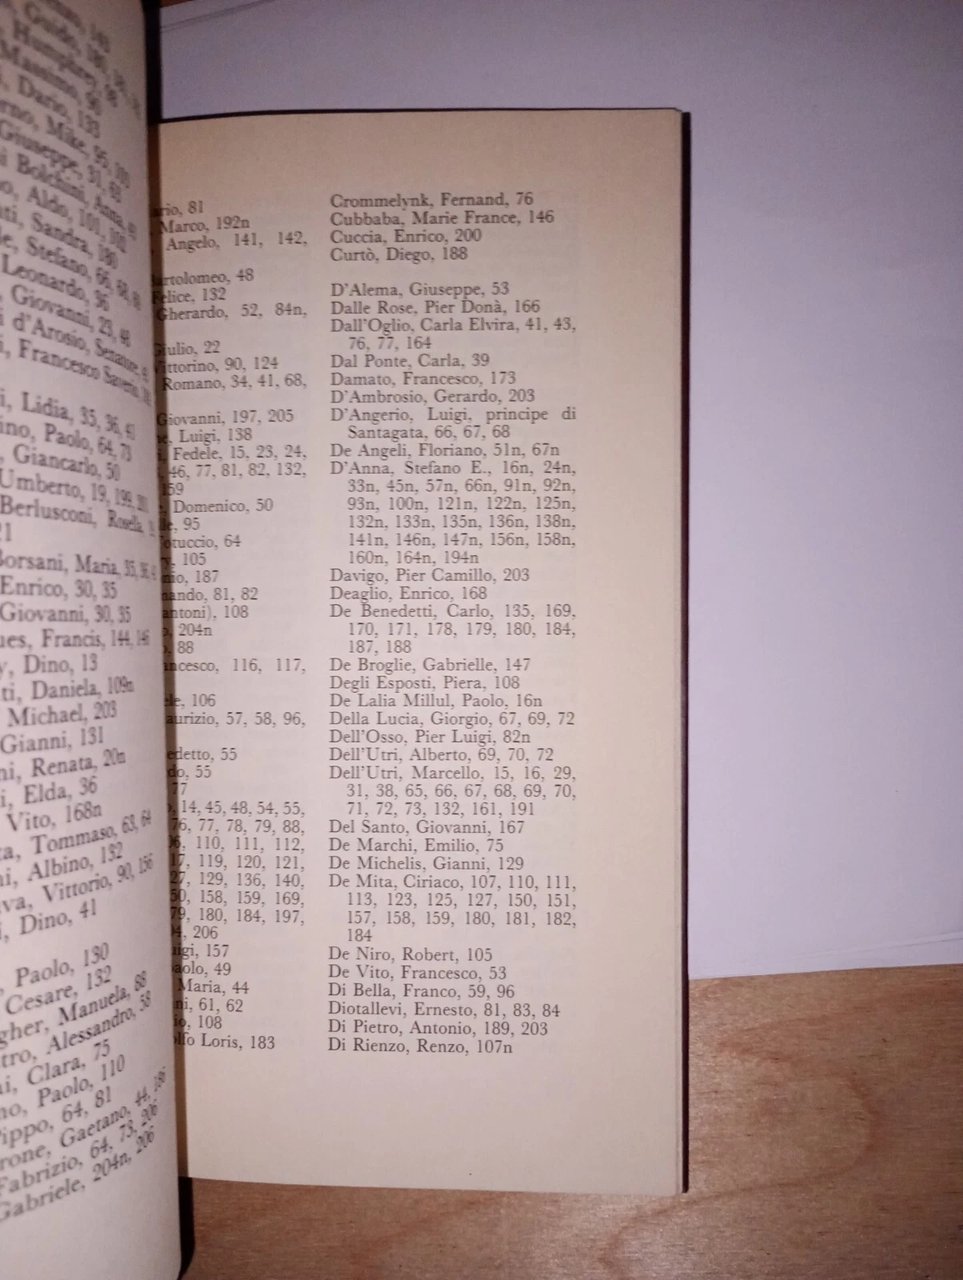 Guido,
Humphrey, 98
Massimo, 96
Dario, 133
Mike, 95, 105
Giuseppe, 31, 63
Bolchini, Anna,
Aldo, 101, 102
Sandra, 180
Stefano, 66, 68,
Leonardo, 36
Giovanni, 25, 48
d'Arosio,
Francesco Saverio,
Lidia, 35, 36,
Paolo, 64, 73
Giancarlo, 50
Umberto, 19, 199, 201
Berlusconi, Rosella,
Borsani, Maria, 35, 36,
Enrico, 30, 35
Giovanni, 30, 35
Francis, 144, 146
Dino, 13
Daniela, 109n
Michael, 203
Gianni, 131
Renata, 20n
Elda, 36
Vito, 168n
Tommaso, 63, 64
Albino, 132
Vittorio, 90, 156
Dino, 41
Paolo, 130
Cesare, 132
Manuela, 88
Alessandro, 58
Clara, 75
Paolo, 110
Pippo, 64, 81
Gaetano, 44, 186
Fabrizio, 64, 73, 206
Gabriele, 204n, 206
81
Marco, 192n
Angelo, 141, 142,
Bartolomeo, 48
Felice, 132
Gherardo, 52, 84n,
Giulio, 22
Vittorino, 90, 124
Romano, 34, 41, 68,
Giovanni, 197, 205
Luigi, 138
Fedele, 15, 23, 24,
46, 77, 81, 82, 132,
159
Domenico, 50
95
64
105
187
81, 82
108
204n
88
116, 117,
106
Maurizio, 57, 58, 96,
55
55
77
14, 45, 48, 54, 55,
76, 77, 78, 79, 88,
110, 111, 112,
117, 119, 120, 121,
127, 129, 136, 140,
150, 158, 159, 169,
179, 180, 184, 197,
206
157
49
Maria, 44
61, 62
108
Loris, 183
Crommelynk, Fernand, 76
Cubbaba, Marie France, 146
Cuccia, Enrico, 200
Curtò, Diego, 188
D'Alema, Giuseppe, 53
Dalle Rose, Pier Donà, 166
Dall'Oglio, Carla Elvira, 41, 43,
76, 77, 164
Dal Ponte, Carla, 39
Damato, Francesco, 173
D'Ambrosio, Gerardo, 203
D'Angerio, Luigi, principe di
Santagata, 66, 67, 68
De Angeli, Floriano, 51n, 67n
D'Anna, Stefano E., 16n, 24n,
33n, 45n, 57n, 66n, 91n, 92n,
93n, 100n, 121n, 122n, 125n,
132n, 133n, 135n, 136n, 138n,
141n, 146n, 147n, 156n, 158n,
160n, 164n, 194n
Davigo, Pier Camillo, 203
Deaglio, Enrico, 168
De Benedetti, Carlo, 135, 169,
170, 171, 178, 179, 180, 184,
187, 188
De Broglie, Gabrielle, 147
Degli Esposti, Piera, 108
De Lalia Millul, Paolo, 16n
Della Lucia, Giorgio, 67, 69, 72
Dell'Osso, Pier Luigi, 82n
Dell'Utri, Alberto, 69, 70, 72
Dell'Utri, Marcello, 15, 16, 29,
31, 38, 65, 66, 67, 68, 69, 70,
71, 72, 73, 132, 161, 191
Del Santo, Giovanni, 167
De Marchi, Emilio, 75
De Michelis, Gianni, 129
De Mita, Ciriaco, 107, 110, 111,
113, 123, 125, 127, 150, 151,
157, 158, 159, 180, 181, 182,
184
De Niro, Robert, 105
De Vito, Francesco, 53
Di Bella, Franco, 59, 96
Diotallevi, Ernesto, 81, 83, 84
Di Pietro, Antonio, 189, 203
Di Rienzo, Renzo, 107n